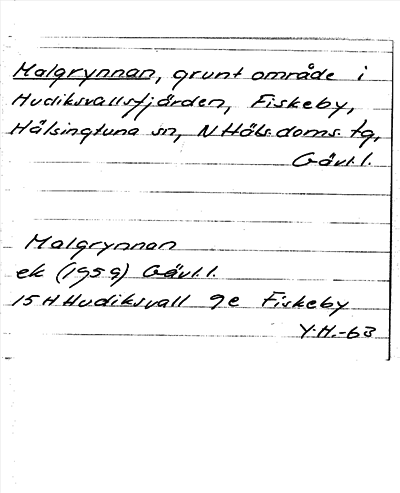 Malgrynnan, grunt område i
Hudiksvallsfjärden, Fiskeby,
Hälsingtuna sn, N Häls. doms. tg,
Gävl. l.
Malgrynnan
ek (1959) Gävl. l.
15 H Hudiksvall 9e Fiskeby
Y.H.-63